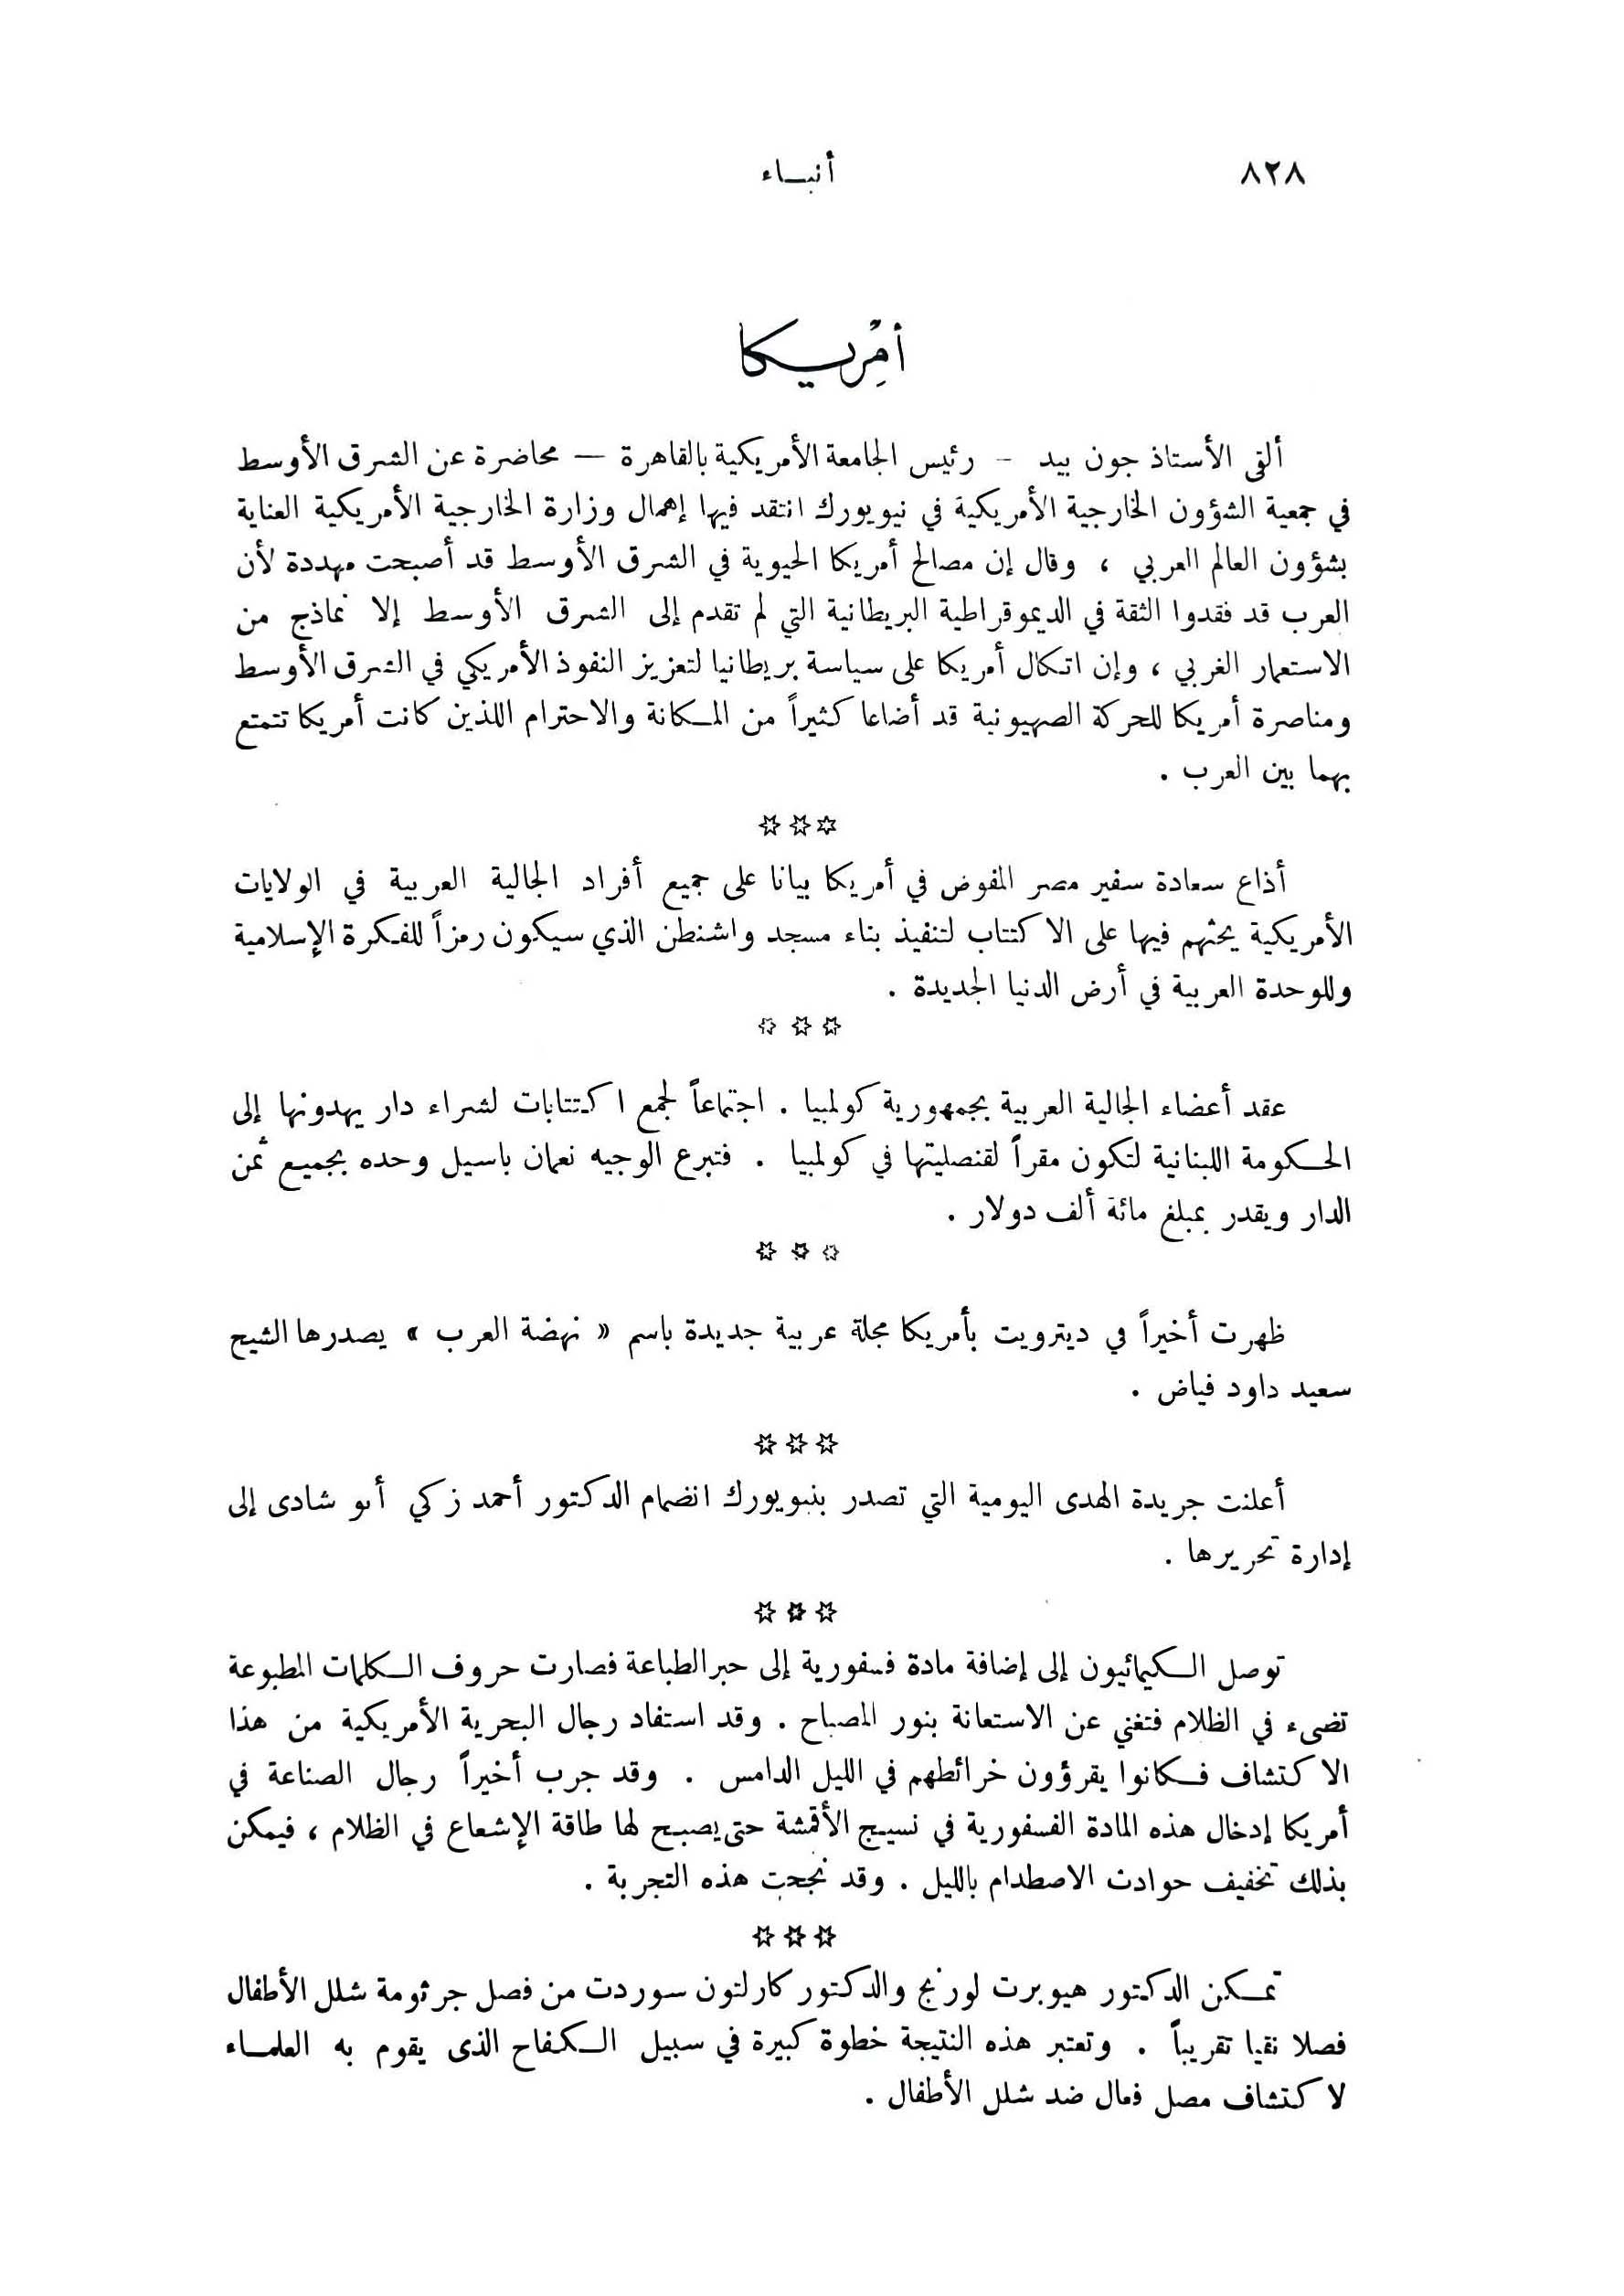 ٨٢٨
أنبـاء
أمريـكا
ألقى الأستاذ جون بيد - رئيس الجامعة الأمريكية بالقاهرة — محاضرة عن الشرق الأوسط
في جمعية الشؤون الخارجية الأمريكية في نيويورك انتقد فيها إهمال وزارة الخارجية الأمريكية العناية
بشؤون العالم العربي ، وقال إن مصالح أمريكا الحيوية في الشرق الأوسط قد أصبحت مهددة لأن
العرب قد فقدوا الثقة في الديموقراطية البريطانية التي لم تقدم إلى الشرق الأوسط إلا نماذج من
الاستعمار الغربي ، وإن اتكال أمريكا على سياسة بريطانيا لتعزيز النفوذ الأمريكي في الشرق الأوسط
ومناصرة أمريكا للحركة الصهيونية قد أضاعا كثيراً من المـكانة والاحترام اللذين كانت أمريكا تتمتع
بهما بين العرب .
***
أذاع سعادة سفير مصر المفوض في أمريكا بيانا على جميع أفراد الجالية العربية في الولايات
الأمريكية يحثهم فيها على الاكتتاب لتنفيذ بناء مسجد واشنطن الذي سيكون رمزاً للفكرة الإسلامية
وللوحدة العربية في أرض الدنيا الجديدة .
* * *
عقد أعضاء الجالية العربية بجمهورية كولمبيا . اجتماعاً لجمع اكتتابات لشراء دار يهدونها إلى
الحـكومة اللبنانية لتكون مقراً لقنصليتها في كولمبيا . فتبرع الوجيه نعمان باسيل وحده بجميع ثمن
الدار ويقدر بمبلغ مائة ألف دولار .
* * *
ظهرت أخيراً في ديترويت بأمريكا مجلة عربية جديدة باسم « نهضة العرب » يصدرها الشيح
سعيد داود فياض .
***
أعلنت جريدة الهدى اليومية التي تصدر بنيويورك انضمام الدكتور أحمد زكي أبو شادى إلى
إدارة تحريرها .
***
توصل الـكيمائيون إلى إضافة مادة فسفورية إلى حبر الطباعة فصارت حروف الـكلمات المطبوعة
تضىء في الظلام فتغني عن الاستعانة بنور المصباح . وقد استفاد رجال البحرية الأمريكية من هذا
الاكتشاف فـكانوا يقرؤون خرائطهم في الليل الدامس . وقد جرب أخيراً رجال الصناعة في
أمريكا إدخال هذه المادة الفسفورية في نسيج الأقمشة حتى يصبح لها طاقة الإشعاع في الظلام ، فيمكن
بذلك تخفيف حوادث الاصطدام بالليل . وقد نجحت هذه التجربة .
***
تمـكن الدكتور هيوبرت لورنج والدكتور كارلتون سوردت من فصل جرثومة شلل الأطفال
فصلا نقيا تقريباً . وتعتبر هذه النتيجة خطوة كبيرة في سبيل الـكفاح الذى يقوم به العلمـاء
لاكتشاف مصل فعال ضد شلل الأطفال .